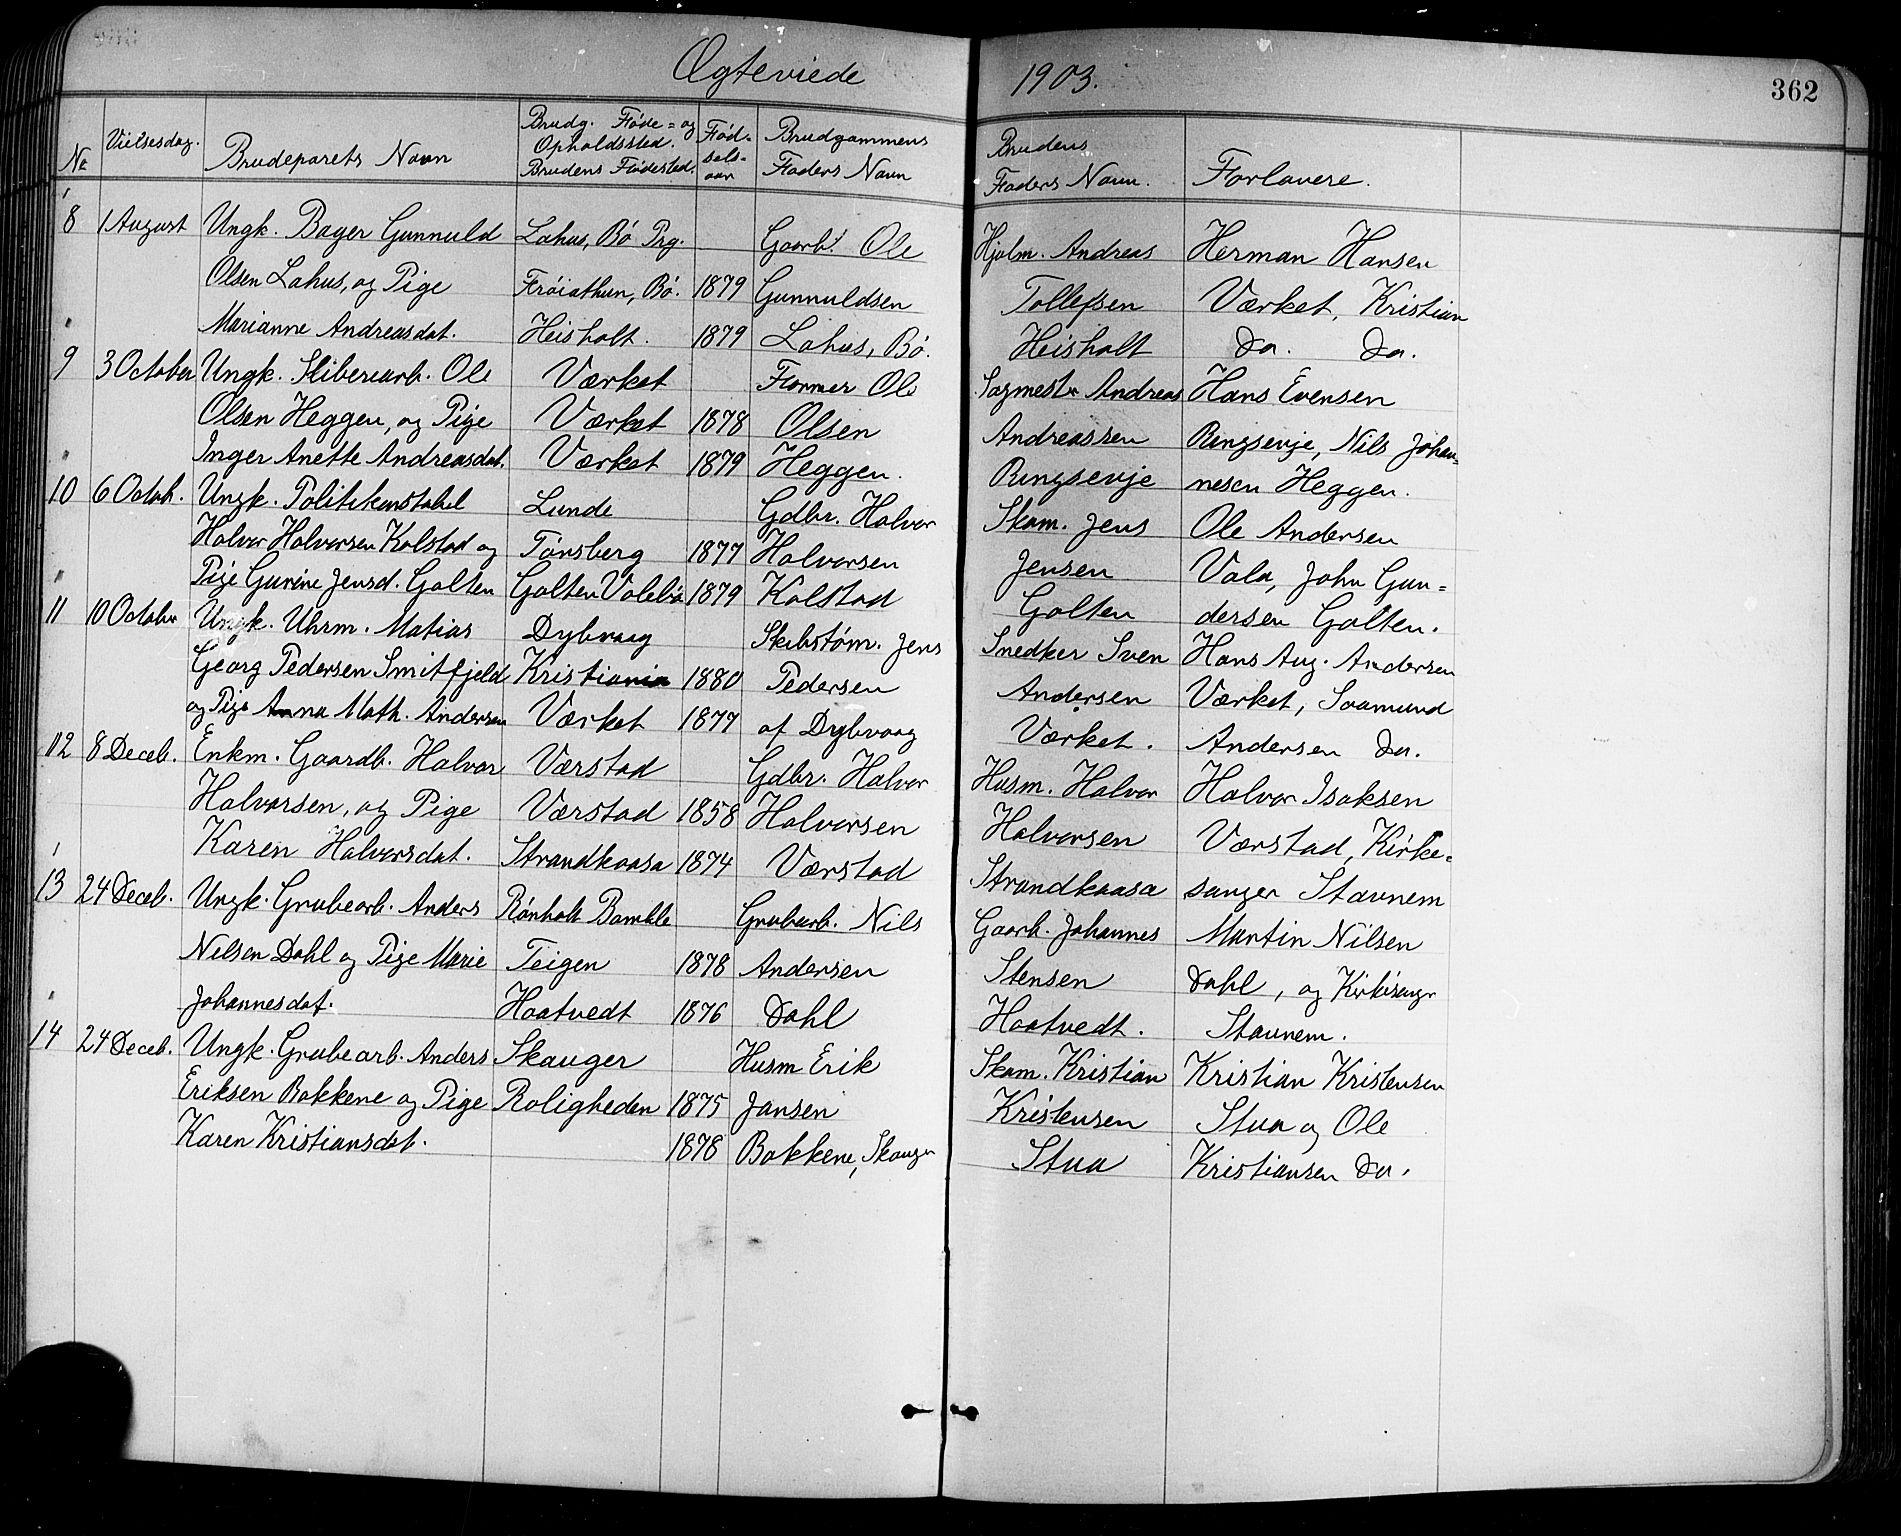 Ægteviede 1903. 362
No Vielsesdag. Brudeparets Navn Brudg. Føde- og Opholdssted. Brudens Fødested. Fød-sels-aar Brudgommens Faders Navn Brudens Faders Navn. Forlovere.
8 1 August Ungk. Bager Gunnuld Lahus, Bø Prg. Gaarb. Ole Hjolm. Andreas Herman Hansen
Olsen Lahus, og Pige Frøiathun, Bø. 1879 Gunnuldsen Tollefsen Værket, Kristian
Marianne Andreasdat. Heisholt. 1879 Lahus, Bø. Heisholt Do. Do.
9 3 October Ungk. Sliberiarb. Ole Værket Former Ole Sagmestr Andreas Hans Evensen
Olsen Heggen, og Pige Værket 1878 Olsen Andreassen Ringsevje, Nils Johan-
Inger Anette Andreasdat. Værket 1879 Heggen. Ringsevje nesen Heggen.
10 6 Octob. Ungk. Politikonstabel Lunde Gdbr. Halvor Skom. Jens Ole Andersen
Halvor Halvorsen Kolstad og Tønsberg 1877 Halvorsen Jensen Vala, John Gun-
Pige Gurine Jensd. Golten Golten Valebø 1879 Kolstad Golten dersen Golten.
11 10 October Ungk. Uhrm. Matias Dybvaag Skibstøm. Jens Snedker Sven Hans Aug. Andersen
Georg Pedersen Smitfjeld Kristiania 1880 Pedersen Andersen Værket, Saamund
og Pige Anna Math. Andersen Værket 1877 af Dybvaag Værket. Andersen Do.
12 8 Deceb. Enkm. Gaardb. Halvor Værstad Gdbr. Halvor Husm. Halvor Halvor Isaksen
Halvorsen, og Pige Værstad 1858 Halvorsen Halvorsen Værstad, Kirke-
Karen Halvorsdat. Strandkaasa 1874 Værstad Strandkaasa sanger Stavnem
13 24 Deceb. Ungk. Grubearb. Anders Rønholt Bamble Grubarb. Nils Gaarb. Johannes Martin Nilsen
Nielsen Dahl og Pige Marie Teigen 1878 Andersen Stensen Dahl, og Kirkesangr
Johannesdat. Haatvedt 1876 Dahl Haatvedt. Stavnem.
14 24 Deceb. Ungk. Grubearb. Anders Skauger Husm Erik Skom. Kristian Kristian Kristensen
Eriksen Bakkene og Pige Roligheden 1875 Jansen Kristensen Stua og Ole
Karen Kristiansdat. 1878 Bakkene, Skauger Stua Kristiansen Do.